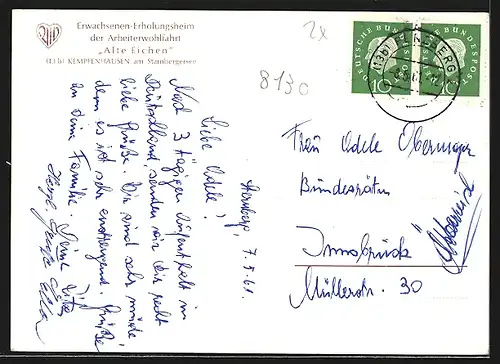 Erwachsenen-Erholungsheim
der Arbeiterwohlfahrt
„Alte Eichen"
(13 b) KEMPFENHAUSEN am Starnbergersee
2x
8130
DEUTSCHE BUNDESPOST
10
DEUTSCHE BUNDESPOST
10
(13b)
Starnberg, 7.5.61.
Liebe Adele!
Nach 3 tägigen Aufenthalt in
Deutschland senden wir Dir recht
liebe Grüße. Wir sind sehr müde,
denn es ist sehr anstrengend. Grüße
an Deine Familie.
Frau Adele Obermayr
Bundesrätin
Innsbruck
Müllerstr. 30
Österreich